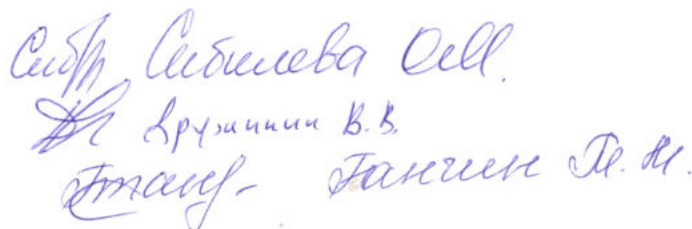 Сибилева О.М.
Дружинин В.В.
Ганчин Т.Н.